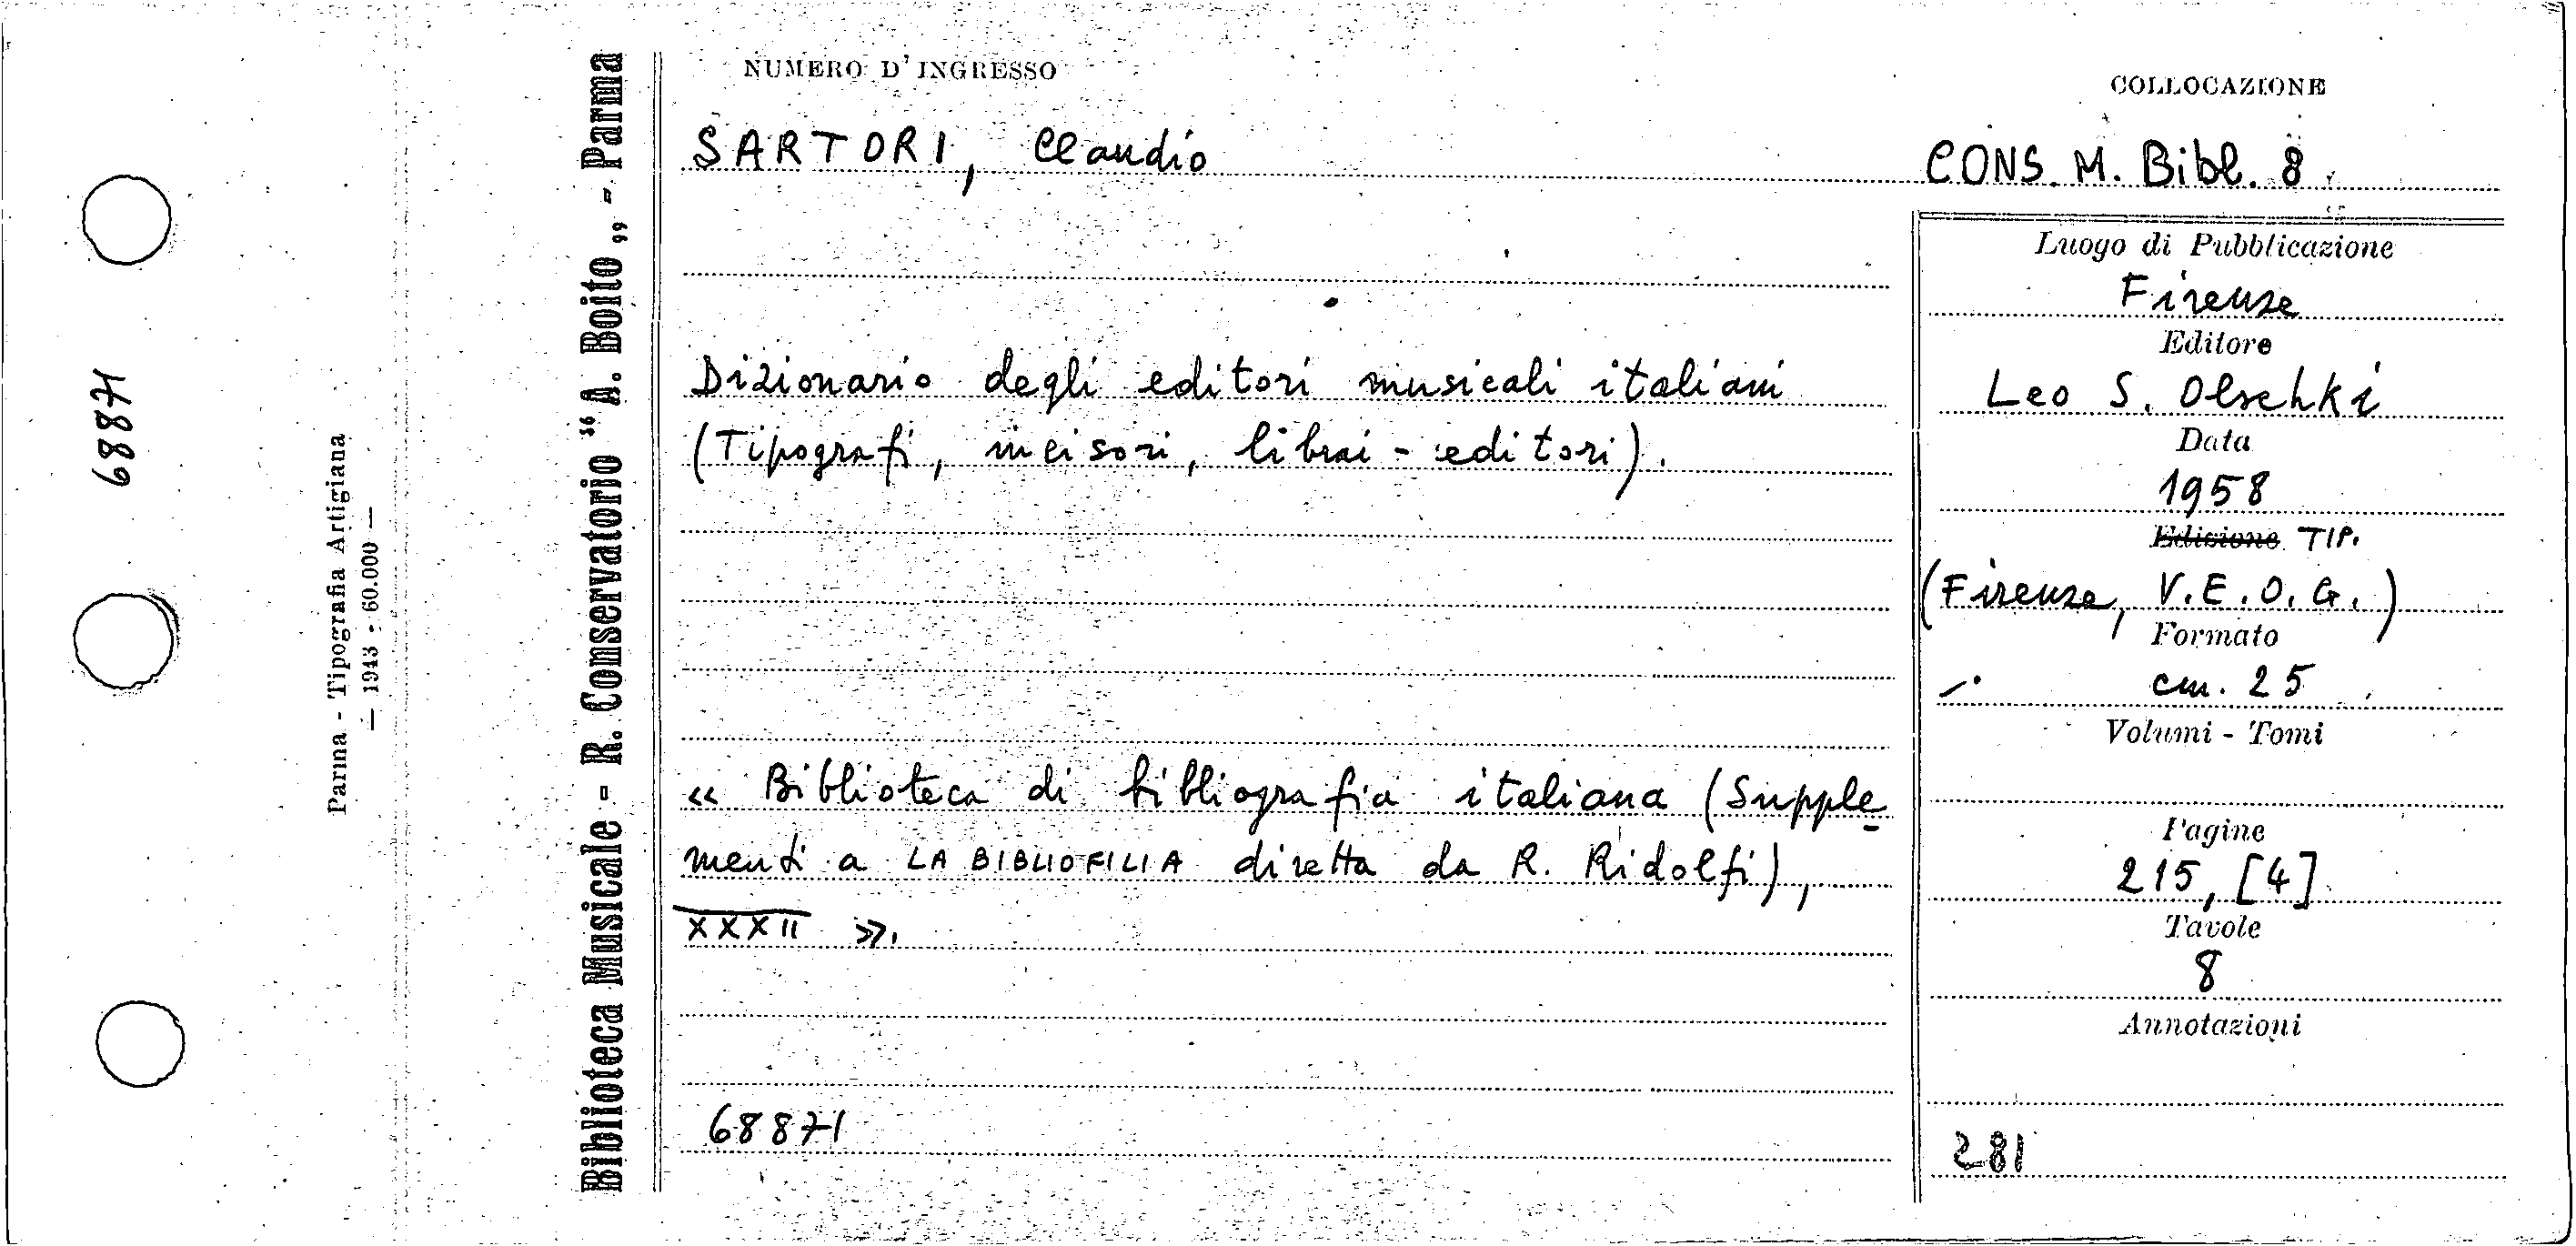 68871
Parma - Tipografia Artigiana
— 1943 - 60.000 —
Biblioteca Musicale - R. Conservatorio “A. Boito„ - Parma
NUMERO D'INGRESSO
SARTORI, Claudio
Dizionario degli editori musicali italiani
(Tipografi, incisori, librai-editori).
« Biblioteca di bibliografia italiana (Supple
menti a LA BIBLIOFILIA diretta da R. Ridolfi),
XXXII ».
68871
COLLOCAZIONE
CONS. M. Bibl. 8
Luogo di Pubblicazione
Firenze
Editore
Leo S. Olschki
Data
1958
Edizione TIP.
(Firenze, V.E.O.G.)
Formato
cm. 25
Volumi - Tomi
Pagine
215, [4]
Tavole
8
Annotazioni
281